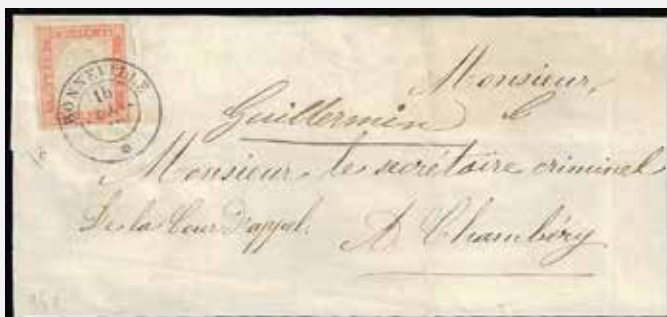 BONNEVILLE
16
Monsieur,
Guillermin
Monsieur le secrétaire criminel
De la Cour d'appel.
A Chambéry